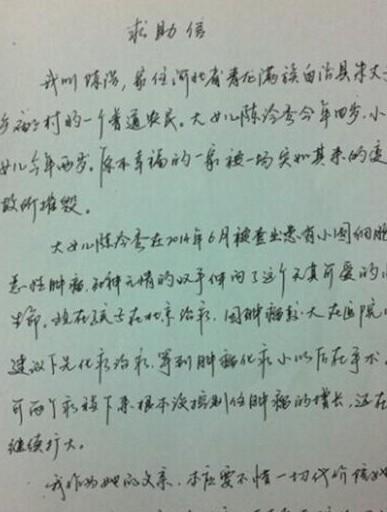 求助信
我叫陈浩，家住河北省青龙满族自治县朱丈子
乡 村的一个普通农民。大女儿陈 今年四岁，小
女儿今年两岁。原本幸福的一家被一场突如其来的变
故所摧毁。
大女儿陈 在2014年6月被查出患有小圆细胞
恶性肿瘤，那种无情的双手伸向了这个天真可爱的小
生命。现在孩子在北京治疗，因肿瘤较大在医院
建议下先化疗治疗，等到肿瘤化疗小以后在手术。
可两个疗程下来根本没控制住肿瘤的增长，还在
继续扩大。
我作为她的父亲，本应要不惜一切代价